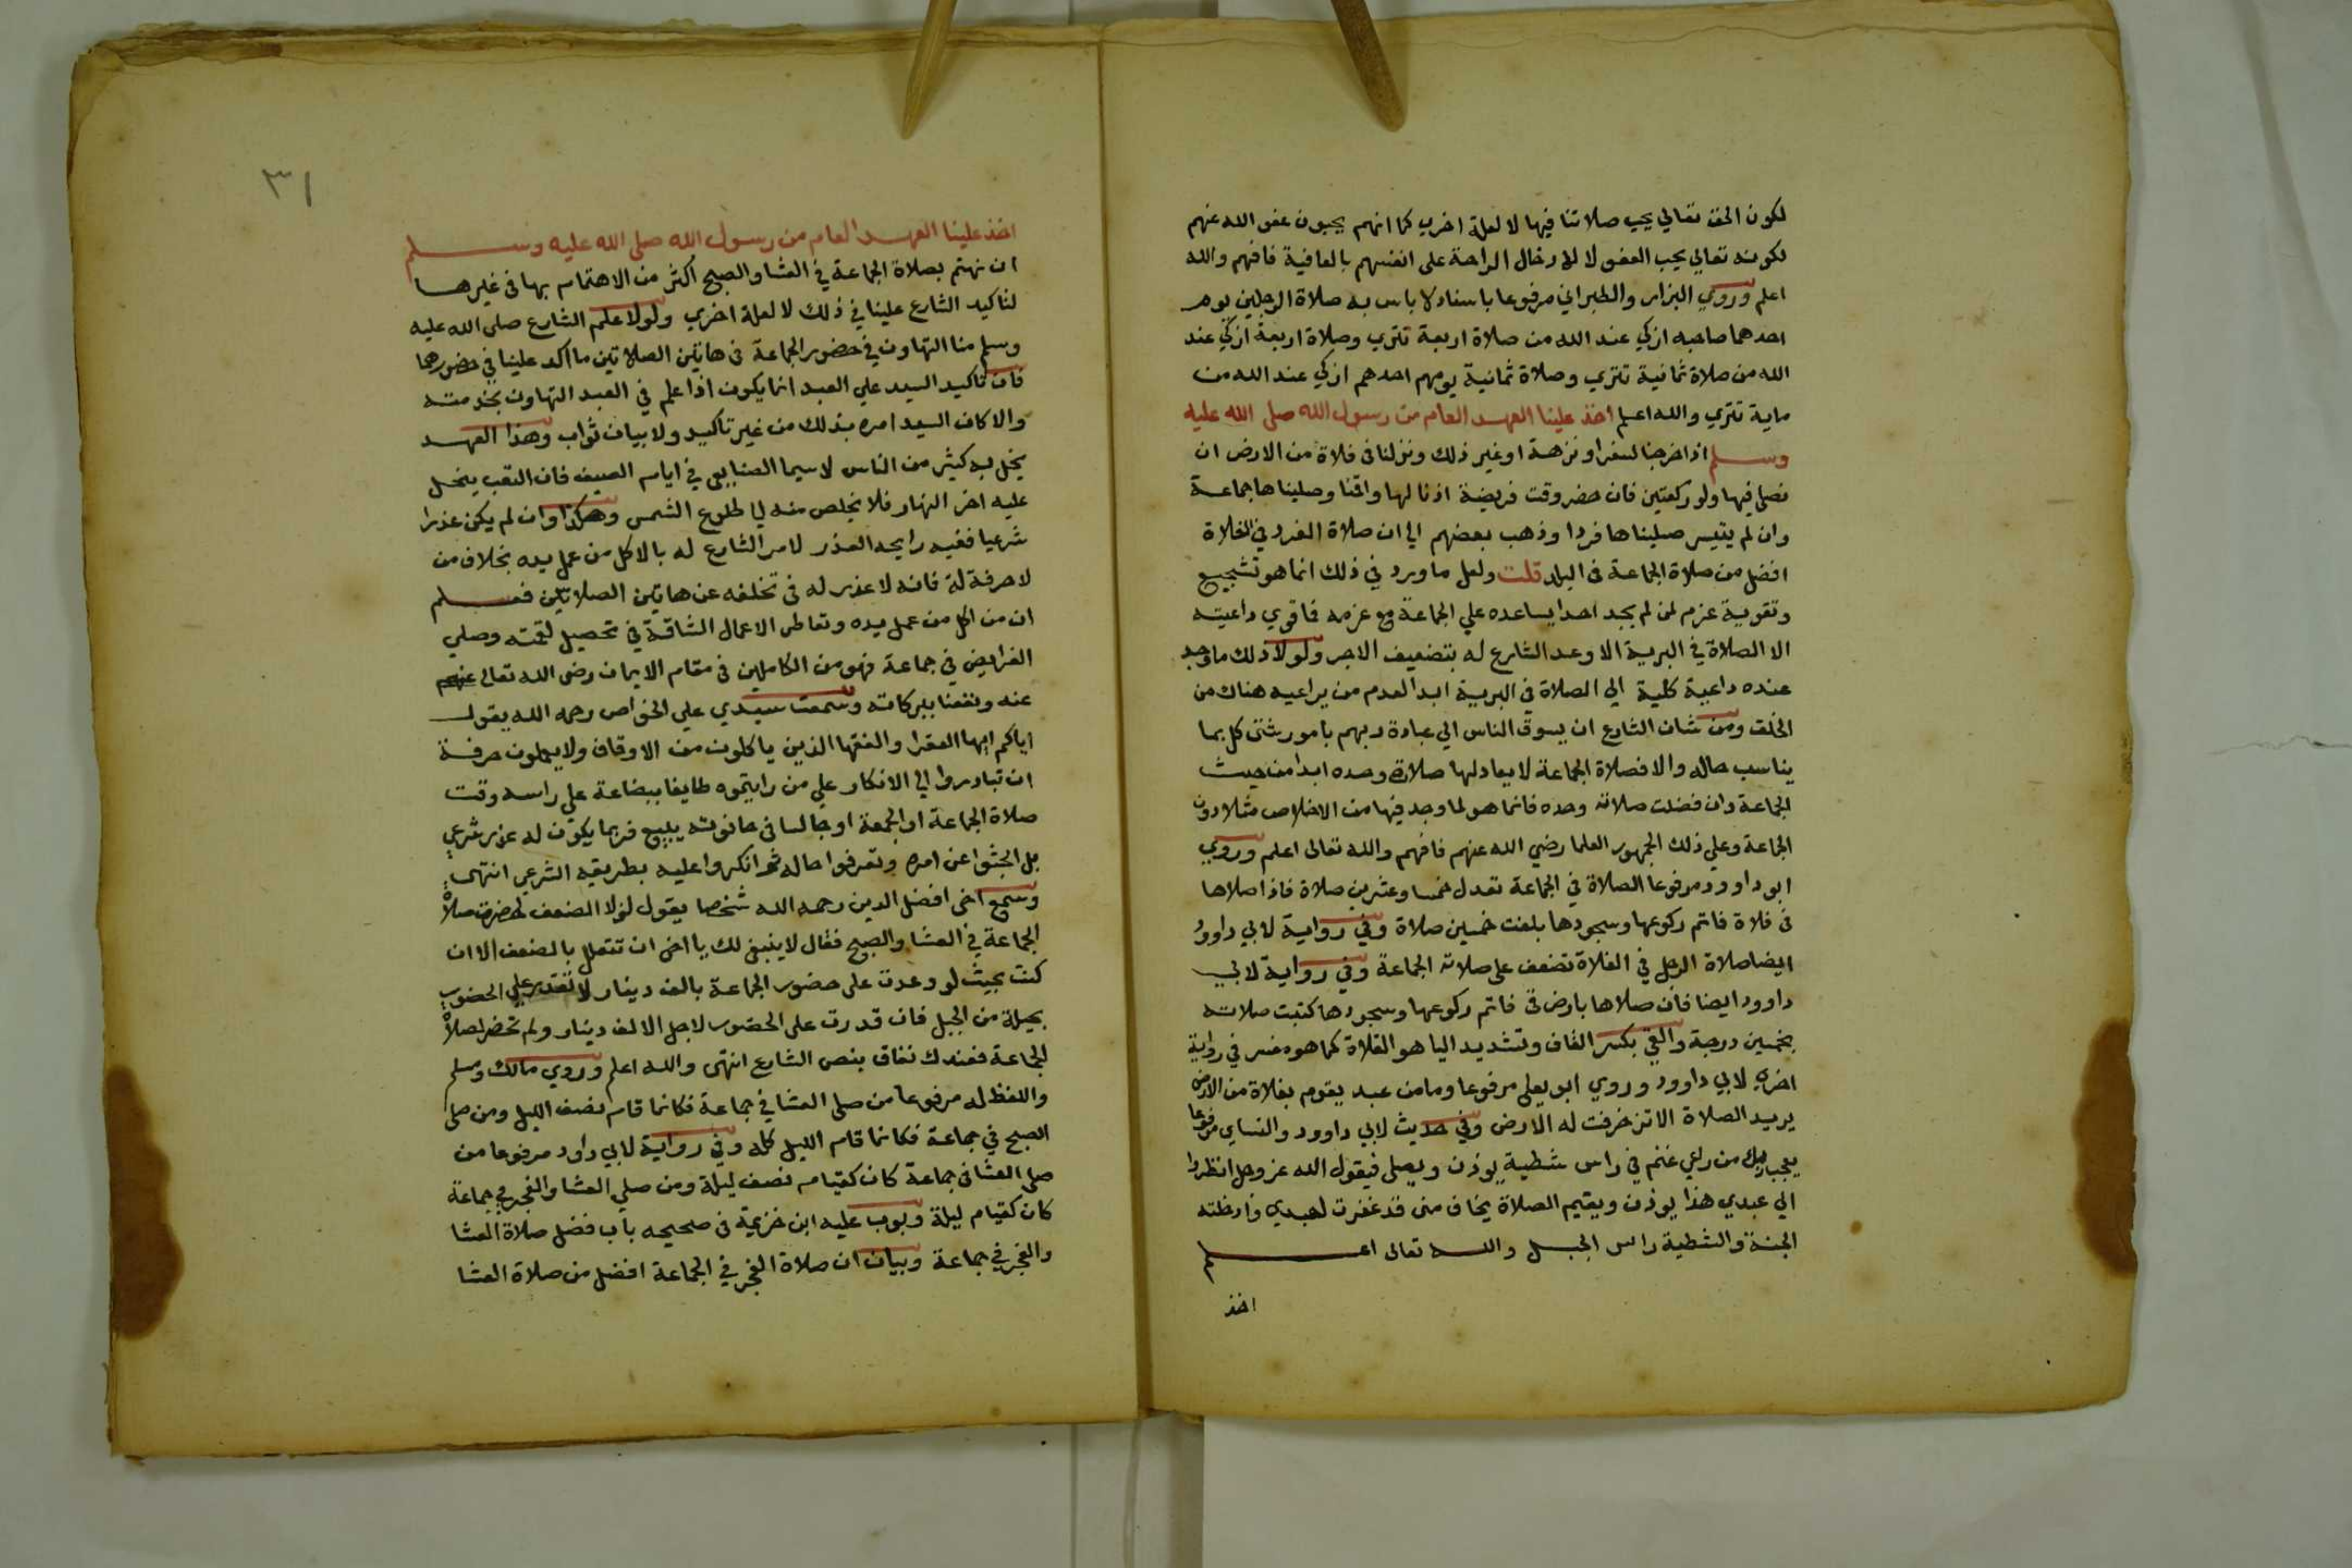 لكون الحق تعالي يحب صلاتنا فيها لا لعلة اخري كما انهم يحبون عفو الله عنهم
لكونه تعالي يحب العفو لا لادخال الراحة على انفسهم بالعافية فافهم والله
اعلم وروي البزار والطبراني مرفوعا باسناد لا باس به صلاة الرجلين يوم
احدهما صاحبه ازكي عند الله من صلاة اربعة تتري وصلاة اربعة ازكي عند
الله من صلاة ثمانية تتري وصلاة ثمانية يومهم احدهم ازكي عند الله من
ماية تتري والله اعلم اخذ علينا العهد العام من رسول الله صلى الله عليه
وسلم اذا خرجنا لسفر او نزهة او غير ذلك ونزلنا في فلاة من الارض ان
نصلي فيها ولو ركعتين فان حضر وقت فريضة اذنا لها واقمنا وصليناها جماعة
وان لم يتيسر صليناها فردا وذهب بعضهم الي ان صلاة الفرد في الفلاة
افضل من صلاة الجماعة في البلد قلت ولعل ما ورد في ذلك انما هو تشجيع
وتقوية عزم لمن لم يجد احدا يساعده علي الجماعة مع عزمه فاقوي داعيته
الا الصلاة في البرية الا وعد الشارع له بتضعيف الاجر ولولا ذلك ما وجد
عنده داعية كلية الي الصلاة في البرية ابدا لعدم من يراعيه هناك من
الخلق ومن شان الشارع ان يسوق الناس الي عبادة ربهم بامور شتى كل بما
يناسب حاله والا فصلاة الجماعة لا يعادلها صلاته وحده ابدا من حيث
الجماعة وان فضلت صلاته وحده فانما هو لما وجد فيها من الاخلاص مثلا دون
الجماعة وعلي ذلك الجمهور العلما رضي الله عنهم فافهم والله تعالى اعلم وروي
ابو داوود مرفوعا الصلاة في الجماعة تعدل خمسا وعشرين صلاة فاذا صلاها
في فلاة فاتم ركوعها وسجودها بلغت خمسين صلاة وفي رواية لابي داوود
ايضا صلاة الرجل في الفلاة تضعف على صلاته الجماعة وفي رواية لابي
داوود ايضا فان صلاها بارض قي فاتم ركوعها وسجودها كتبت صلاته
بخمسين درجة والقي بكسر القاف وتشديد اليا هو الفلاة كما هو مفسر في رواية
اخري لابي داوود وروي ابو يعلى مرفوعا وما من عبد يقوم بفلاة من الارض
يريد الصلاة الا تزخرفت له الارض وفي حديث لابي داوود والنساي مرفوعا
يعجب ربك من راعي غنم في راس شظية يوذن ويصلى فيقول الله عز وجل انظروا
الي عبدي هذا يوذن ويقيم الصلاة يخاف مني قد غفرت لعبدي وادخلته
الجنة والشظية راس الجبل والله تعالى اعلم
اخذ
٣١
اخذ علينا العهد العام من رسول الله صلى الله عليه وسلم
ان نهتم بصلاة الجماعة في العشا والصبح اكثر من الاهتمام بها في غيرها
لتاكيد الشارع علينا في ذلك لا لعلة اخري ولولا علم الشارع صلى الله عليه
وسلم منا التهاون في حضور الجماعة في هاتين الصلاتين ما اكد علينا في حضورهما
فان تاكيد السيد علي العبد انما يكون اذا علم في العبد التهاون بخدمته
والا كان السيد امره بذلك من غير تاكيد ولا بيان ثواب وهذا العهد
يخل به كثير من الناس لا سيما الصنايعي في ايام الصيف فان التعب ينحل
عليه اخر النهار فلا يخلص منه الي طلوع الشمس وهكذا وان لم يكن عذرا
شرعيا ففيه رايحه العذر لامر الشارع له بالاكل من عمل يده بخلاف من
لا حرفة له فانه لا عذر له في تخلفه عن هاتين الصلاتين فعلم
ان من اكل من عمل يده وتعاطى الاعمال الشاقة في تحصيل لقمته وصلي
الفرايض في جماعة فهو من الكاملين في مقام الايمان رضى الله تعالى عنهم
عنه ونفعنا ببركاته وسمعت سيدي علي الخواص رحمه الله يقول
اياكم ايها الفقرا والفقها الذين ياكلون من الاوقاف ولا يعملون حرفة
ان تبادروا الي الانكار علي من رايتموه طايفا ببضاعة على راسه وقت
صلاة الجماعة او الجمعة او جالسا في حانوته يبيع فربما يكون له عذر شرعي
بل ابحثوا عن امره وتعرفوا حاله ثم انكروا عليه بطريقه الشرعي انتهى
وسمع اخي افضل الدين رحمه الله شخصا يقول لولا الضعف لحضرت صلاة
الجماعة في العشا والصبح فقال لا ينبغي لك يا اخى ان تتعلل بالضعف الا ان
كنت بحيث لو وعدت على حضور الجماعة بالف دينار لا تقدر علي الحضور
بحيلة من الحيل فان قدرت على الحضور لاجل الالف دينار ولم تحضر لصلاة
الجماعة فعندك نفاق بنص الشارع انتهى والله اعلم وروي مالك ومسلم
واللفظ له مرفوعا من صلى العشا في جماعة فكانما قام نصف الليل ومن صلى
الصبح في جماعة فكانما قام الليل كله وفي رواية لابي داود مرفوعا من
صلى العشا في جماعة كان كقيام نصف ليلة ومن صلي العشا والفجر في جماعة
كان كقيام ليلة وبوب عليه ابن خزيمة في صحيحه باب فضل صلاة العشا
والفجر في جماعة وبيان ان صلاة الفجر في الجماعة افضل من صلاة العشا